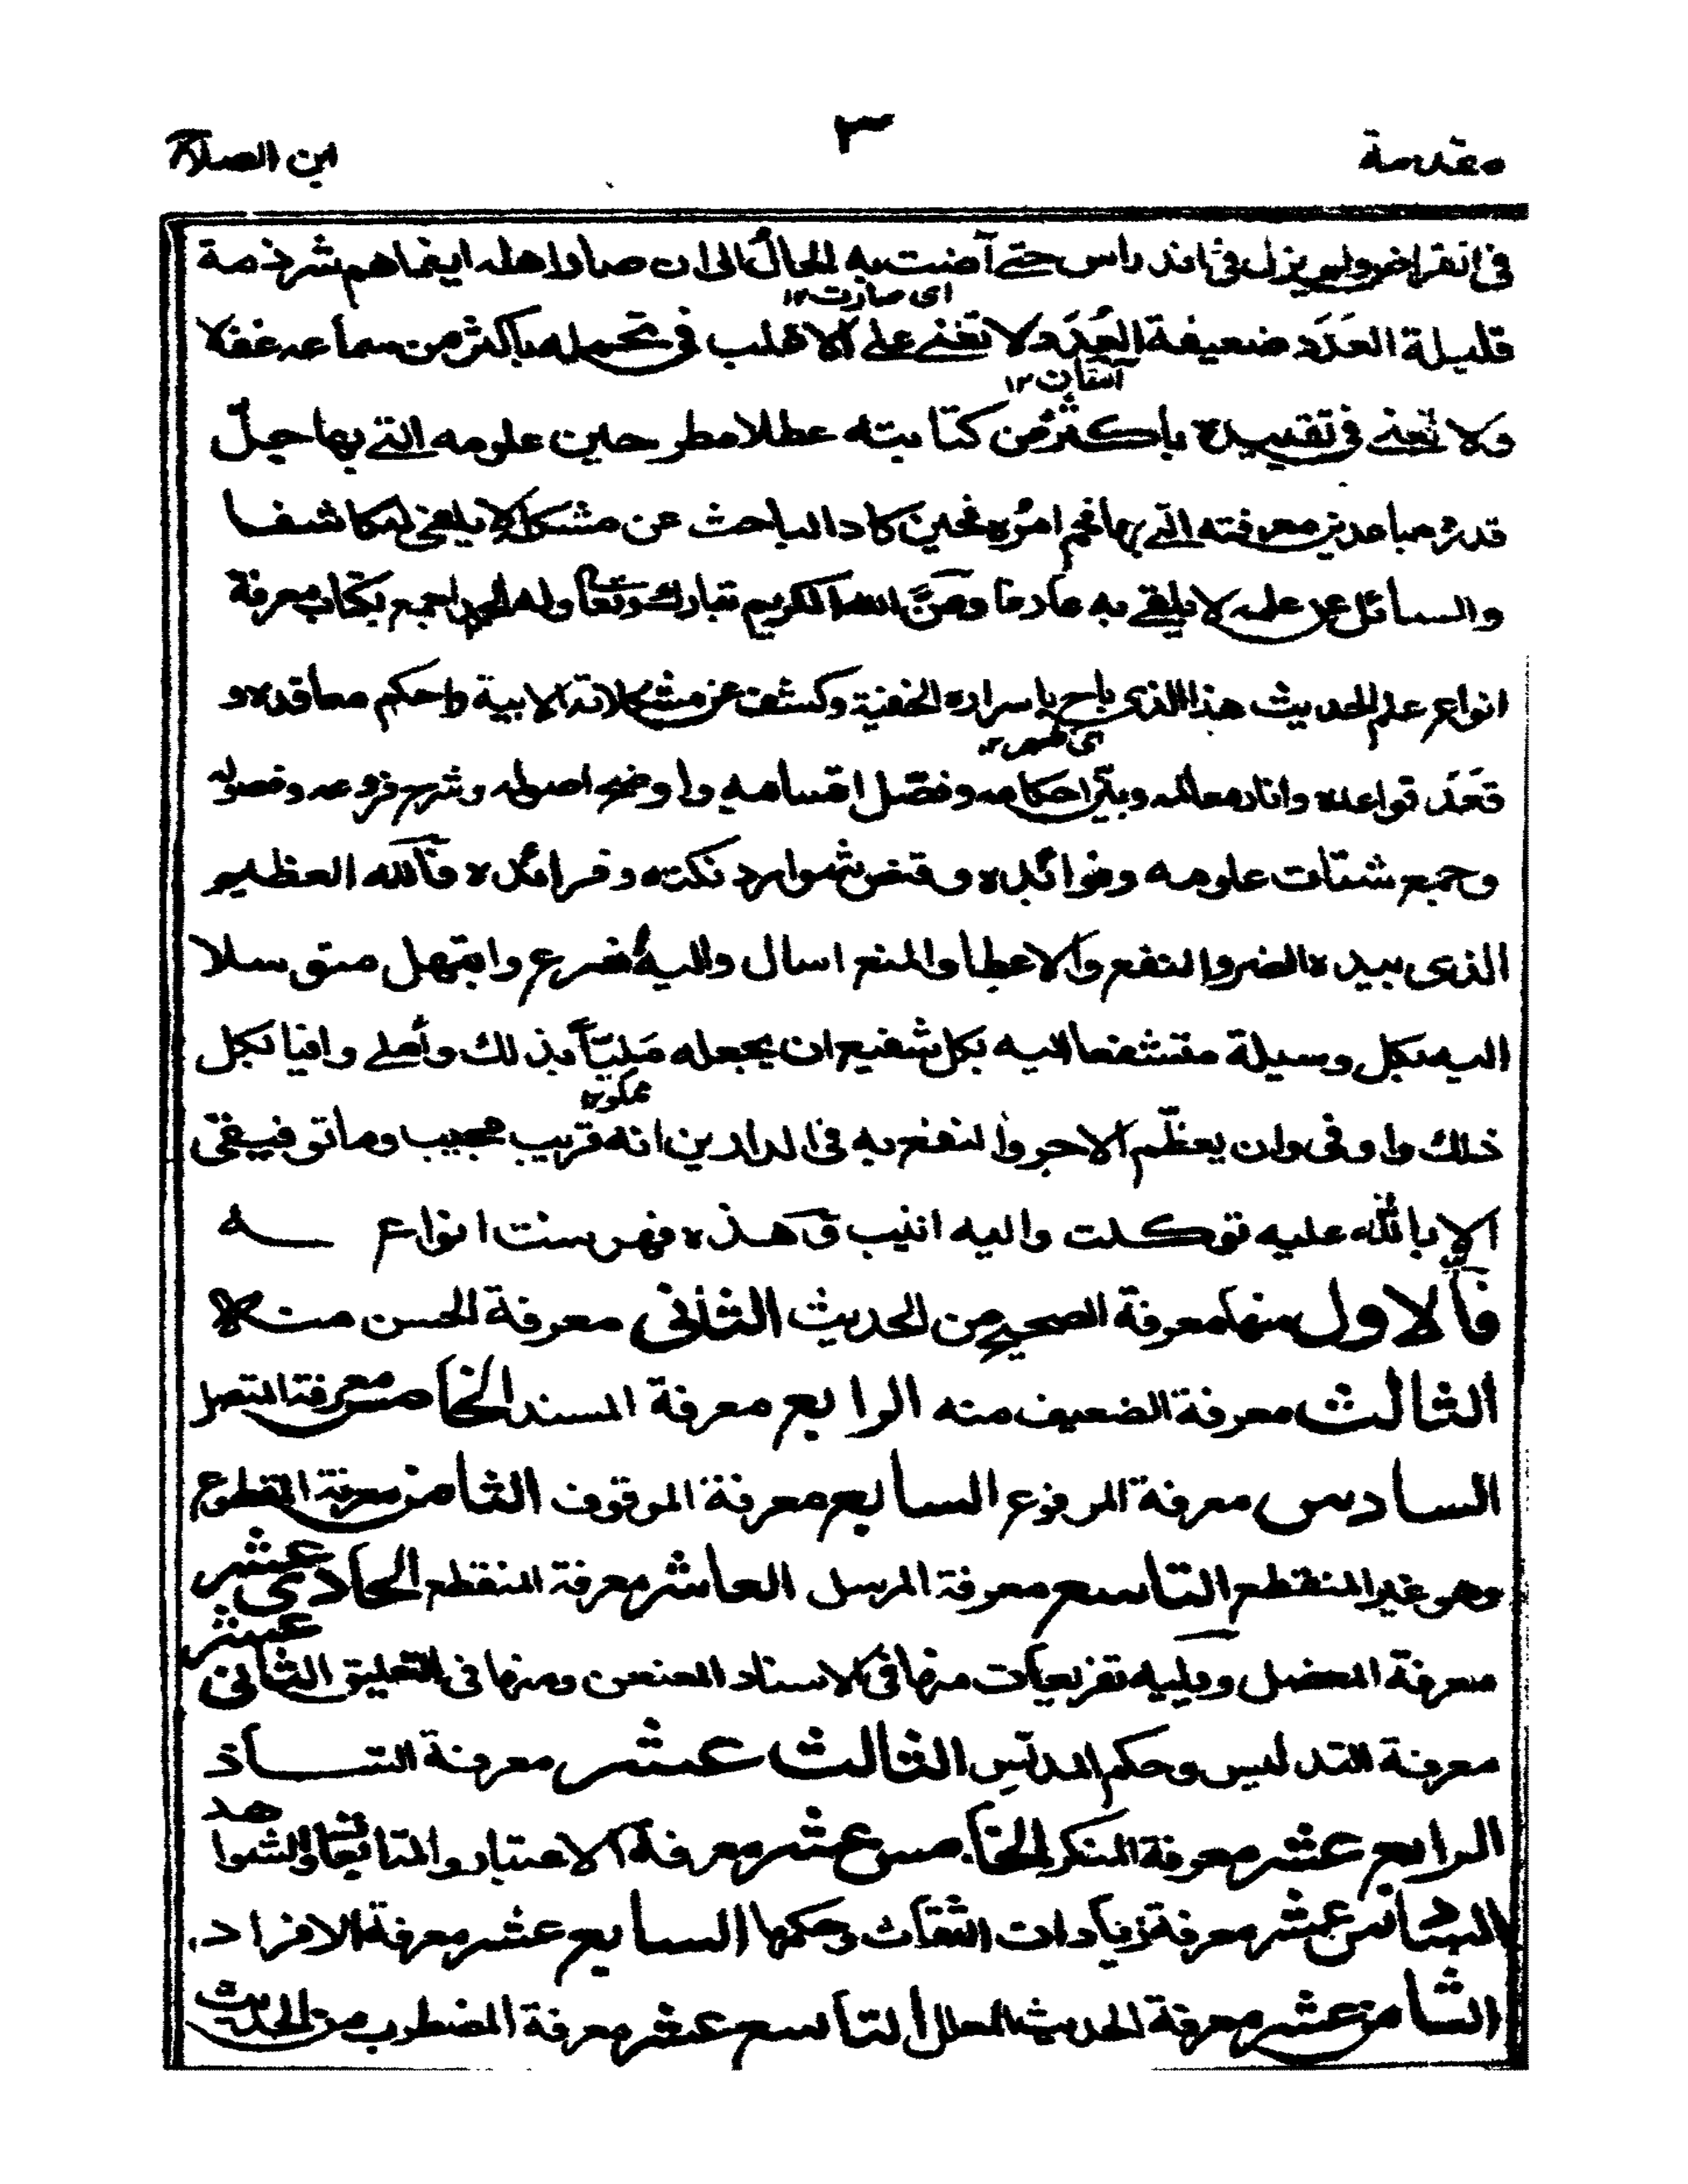 مقدمة
٣
ابن الصلاح
في انقراض ولم يزل في اندراس حتى آضت به الحال الى ان صار اهله انما هم شرذمة
اى صارت١٢
قليلة العَدَد ضعيفة العُدَد ولا تغنى على الاغلب في تحمله باكثر من سماعه غفلا
اتقان١٢
ولا تعنى في تقييده باكثر من كتابته عطلا مطرحين علومه التى بها جل
قدره مباعدين معرفته التى بها فخم امره فحين كاد الباحث عن مشكله لا يلفى له كاشفا
والسائل عن علمه لا يلقى به عارفا ومَنَّ الله الكريم تبارك وتعالى وله الحمد اجمع بكتاب معرفة
انواع علم الحديث هذا الذى باح باسراره الخفية وكشف عن مشكلاته الابية واحكم معاقده و
اى ظهر١٢
قَعَدَ قواعده وانار معالمه وبيّن احكامه وفصّل اقسامه واوضح اصوله وشرح فروعه وفصوله
وجمع شتات علومه وفوائده وقنص شوارد نكته وفرائده فالله العظيم
الذى بيده الضر والنفع والاعطا والمنع اسال واليه اضرع وابتهل متوسلا
اليه بكل وسيلة متشفعا اليه بكل شفيع ان يجعله مَلِيّاً بذلك وأملى وافيا بكل
مملو١٢
ذلك واوفى وان يعظّم الاجر والنفع به في الدارين انه قريب مجيب وما توفيقى
الا بالله عليه توكلت واليه انيب و هذه فهرست انواعـــه
فالاول منها معرفة الصحيح من الحديث الثانى معرفة الحسن منه
الثالث معرفة الضعيف منه الرابع معرفة المسند الخامس معرفة المتصل
السادس معرفة المرفوع السابع معرفة الموقوف الثامن معرفة المقطوع
وهو غير المنقطع التاسع معرفة المرسل العاشر معرفة المنقطع الحادى عشر
معرفة المعضل ويليه تفريعات منها في الاسناد المعنعن ومنها في التعليق الثانى عشر
معرفة التدليس وحكم المدلّس الثالث عشر معرفة الشـــاذ
الرابع عشر معرفة المنكر الخامس عشر معرفة الاعتبار والمتابعات والشواهد
السادس عشر معرفة زيادات الثقات وحكمها السابع عشر معرفة الافراد
الثامن عشر معرفة الحديث المعلل التاسع عشر معرفة المضطرب من الحديث